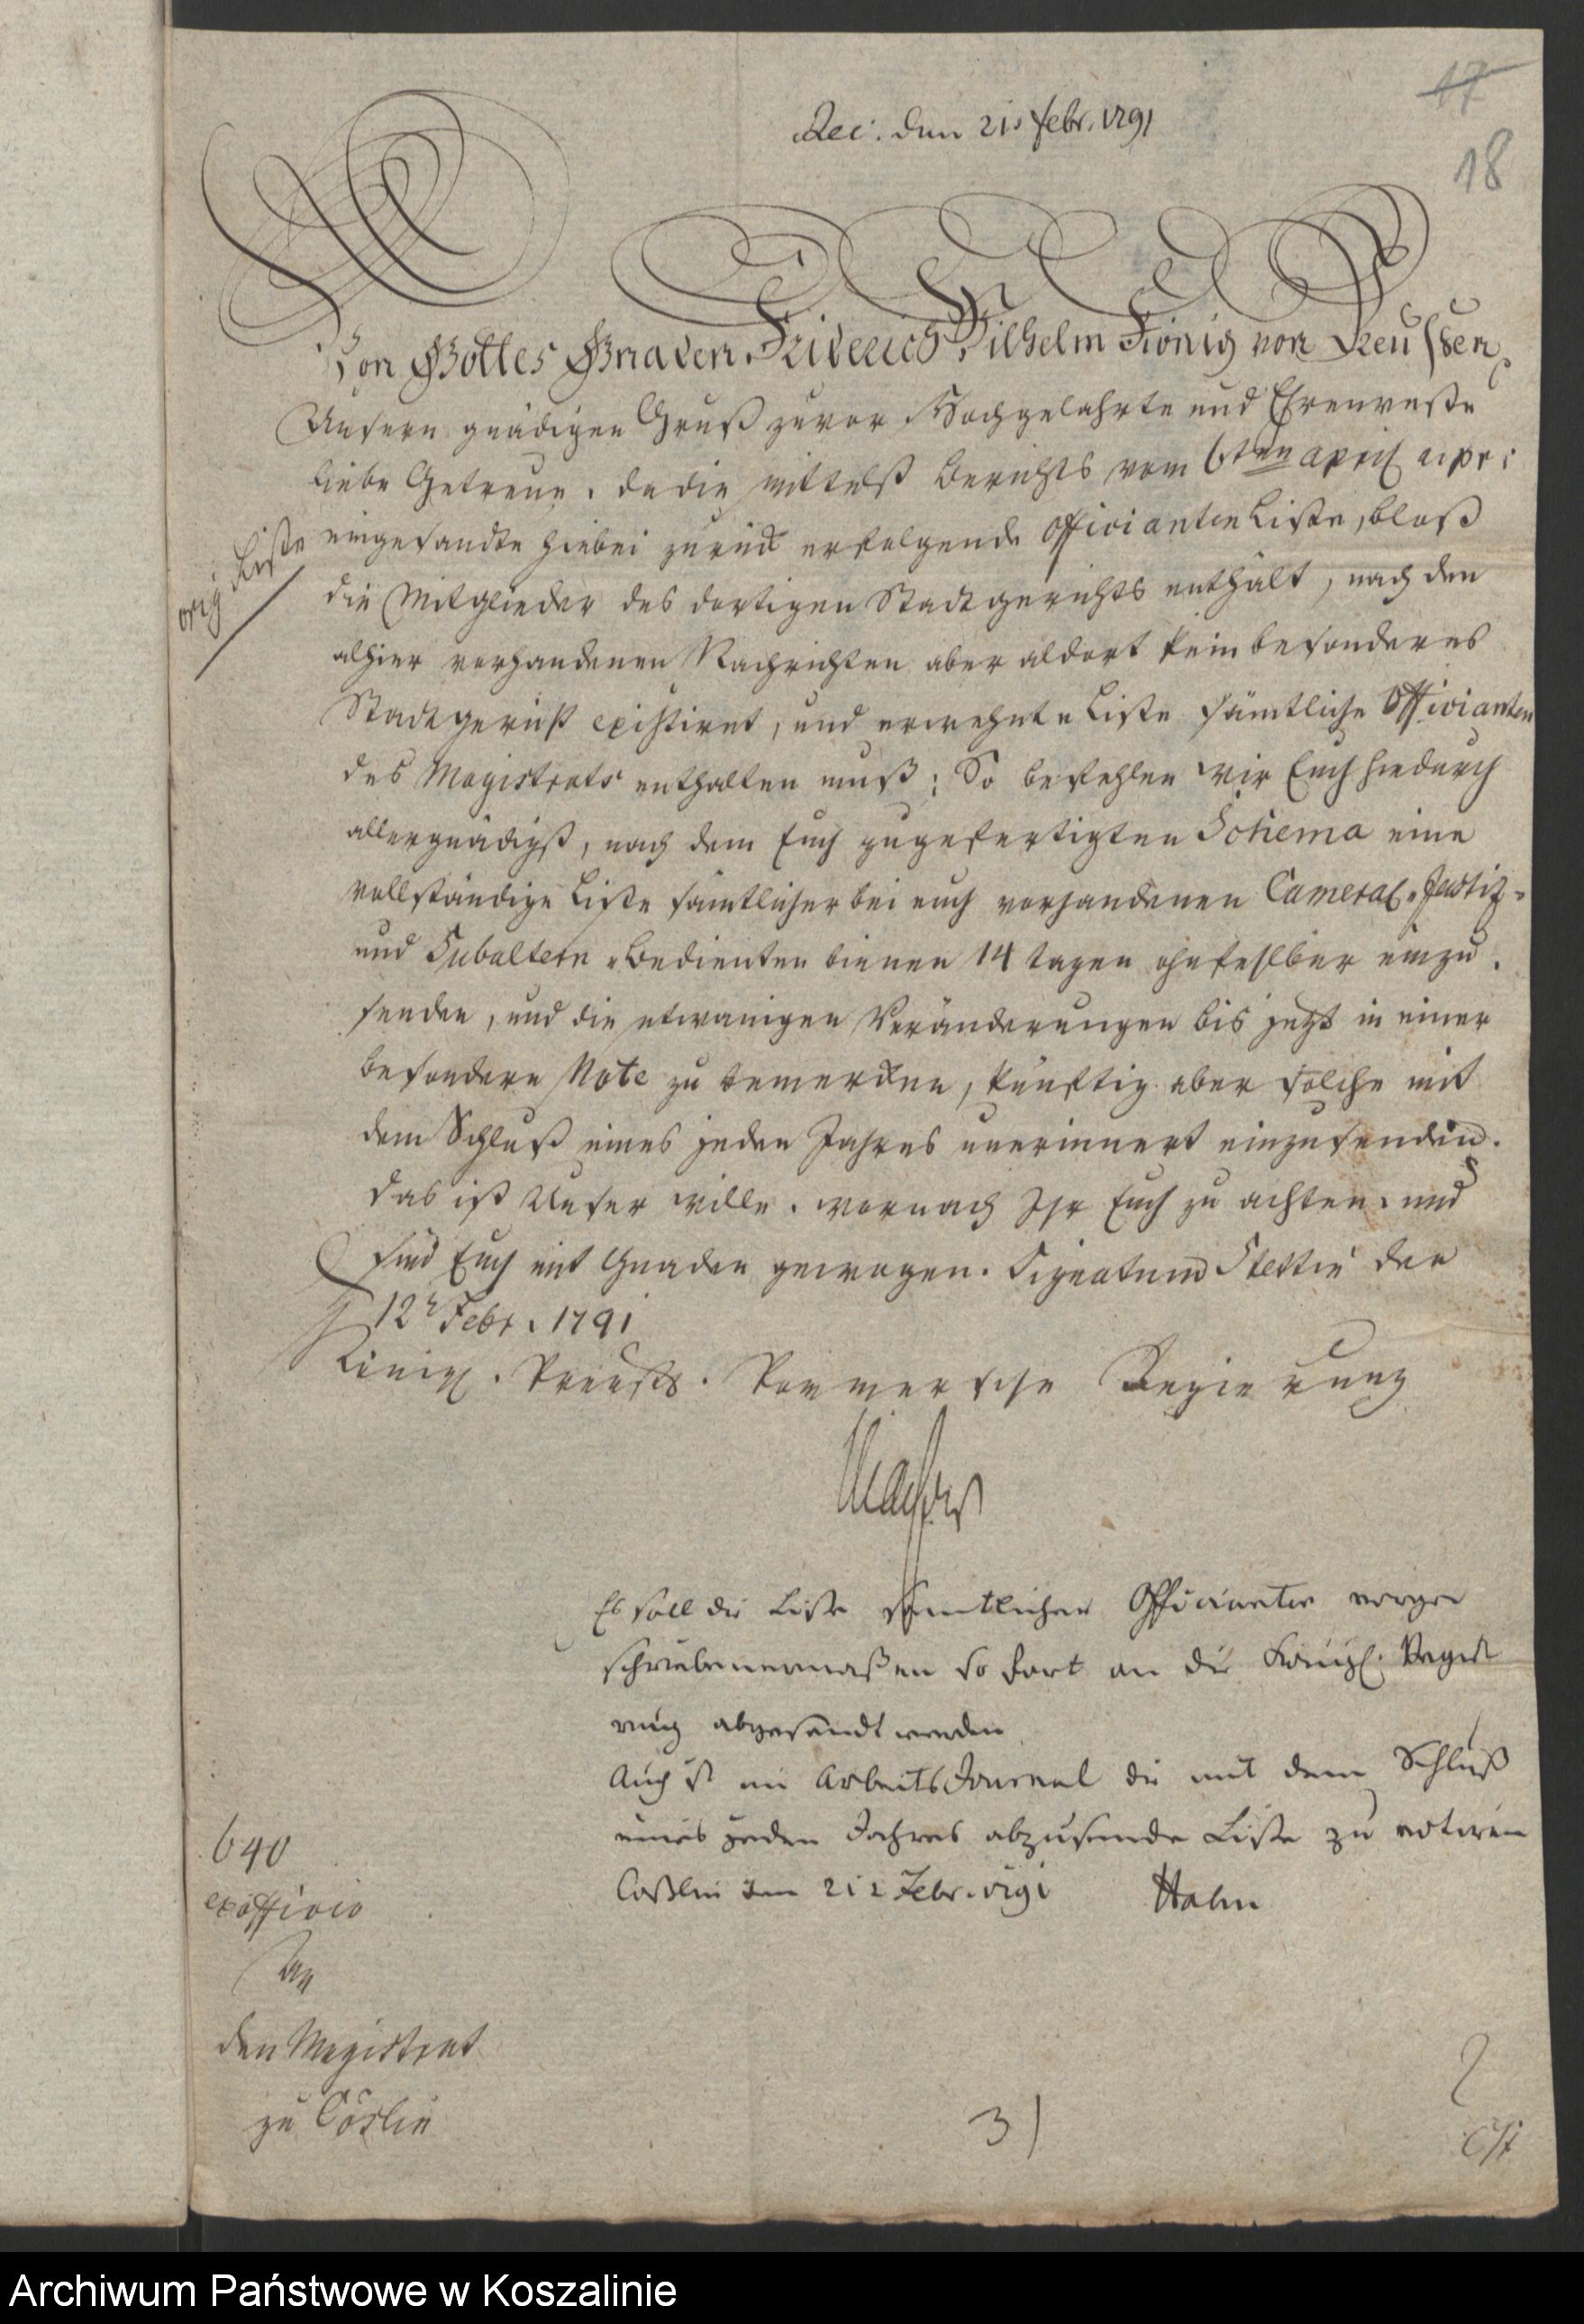 17
18
Rec. den 21. Febr. 1791
Von Gottes Gnaden Friderich Wilhelm König von Preußen
Unsern gnädigen Gruß zuvor Hochgelahrte und Ehrenveste
liebe Getreue. Da die mittelst Berichts vom 6ten April a. pr:
orig Liste
eingesandte hiebei zurück erfolgende Officianten Liste, blos
die Mitglieder des dortigen Stadtgerichts enthält, nach den
alhier vorhandenen Nachrichten aber aldort kein besonderes
Stadtgericht existiret, und erwehnte Liste sämtliche Officianten
des Magistrats enthalten muß; So befehlen wir Euch hiedurch
allergnädigst, nach dem Euch zugefertigten Schema eine
vollständige Liste sämtlicher bei euch vorhandenen Cameral-Justiz-
und Subaltern-Bedienten binnen 14 tagen ohnfehlbar einzu
senden, und die etwanigen Veränderungen bis jetzt in einer
besondern Note zu bemerken, künftig aber solche mit
dem Schluß eines jeden Jahres unerinnert einzusenden.
Das ist Unser wille, wornach Ihr Euch zu achten, und
sind Euch mit Gnaden gewogen. Signatum Stettin den
12t Febr. 1791
Königl. Preuß. Pommersche Regierung
Es soll die Liste sämtlicher Officianten vorge
schriebenermaßen so fort an die Königl. Regie
rung abgesandt werden
Auch ist im Arbeits Journal die mit dem Schluß
eines jeden Jahres abzusende Liste zu notiren
Cößlin den 21t Febr. 1791 Hahn
640
ex officio
An
den Magistrat
zu Cöslin
3)
Archiwum Państwowe w Koszalinie